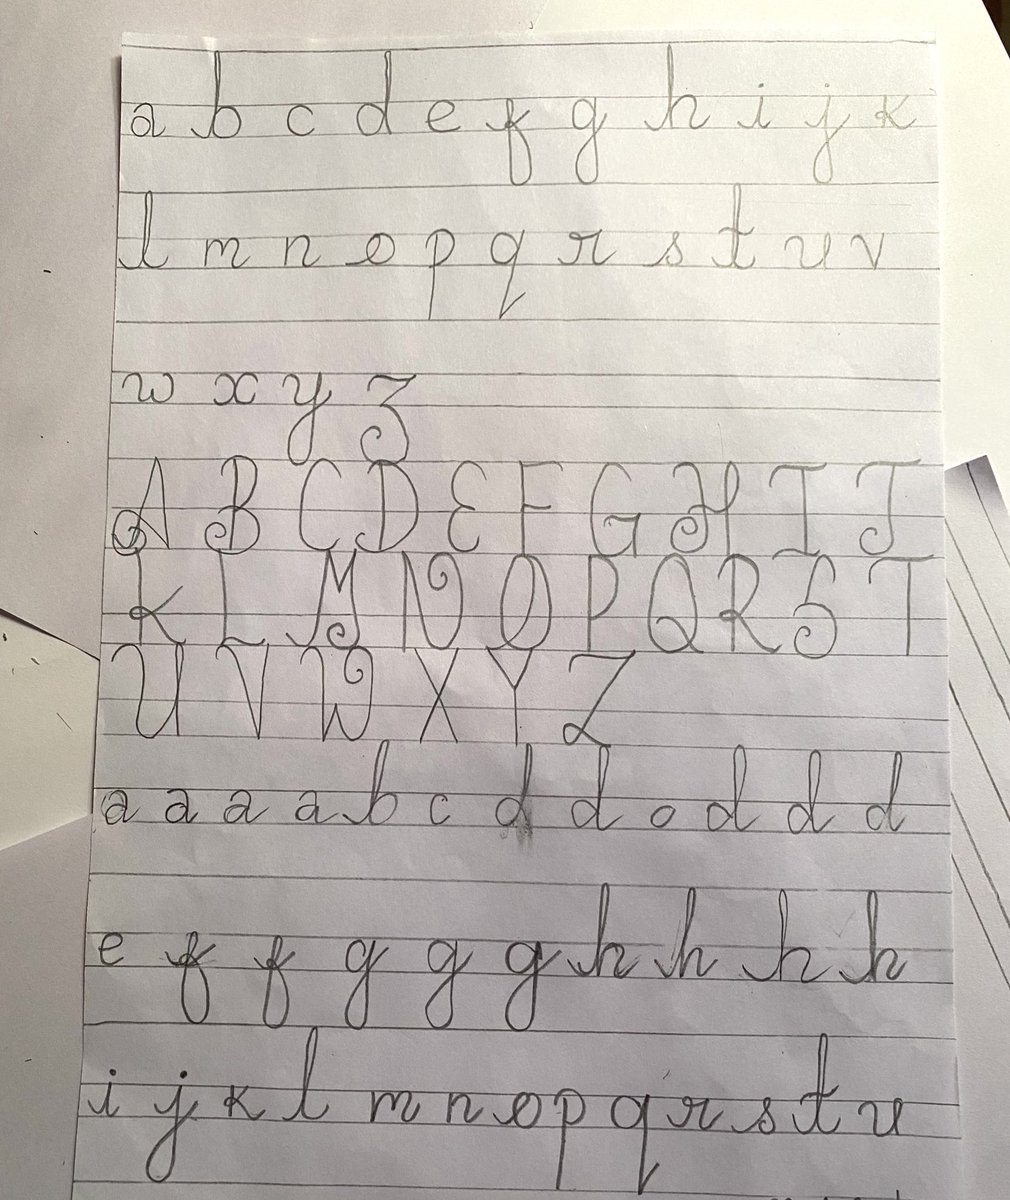 a b c d e f g h i j k
l m n o p q r s t u v
w x y z
A B C D E F G H I J
K L M N O P Q R S T
U V W X Y Z
a a a a b c d d o d d d
e f f g g g h h h h
i j k l m n o p q r s t u